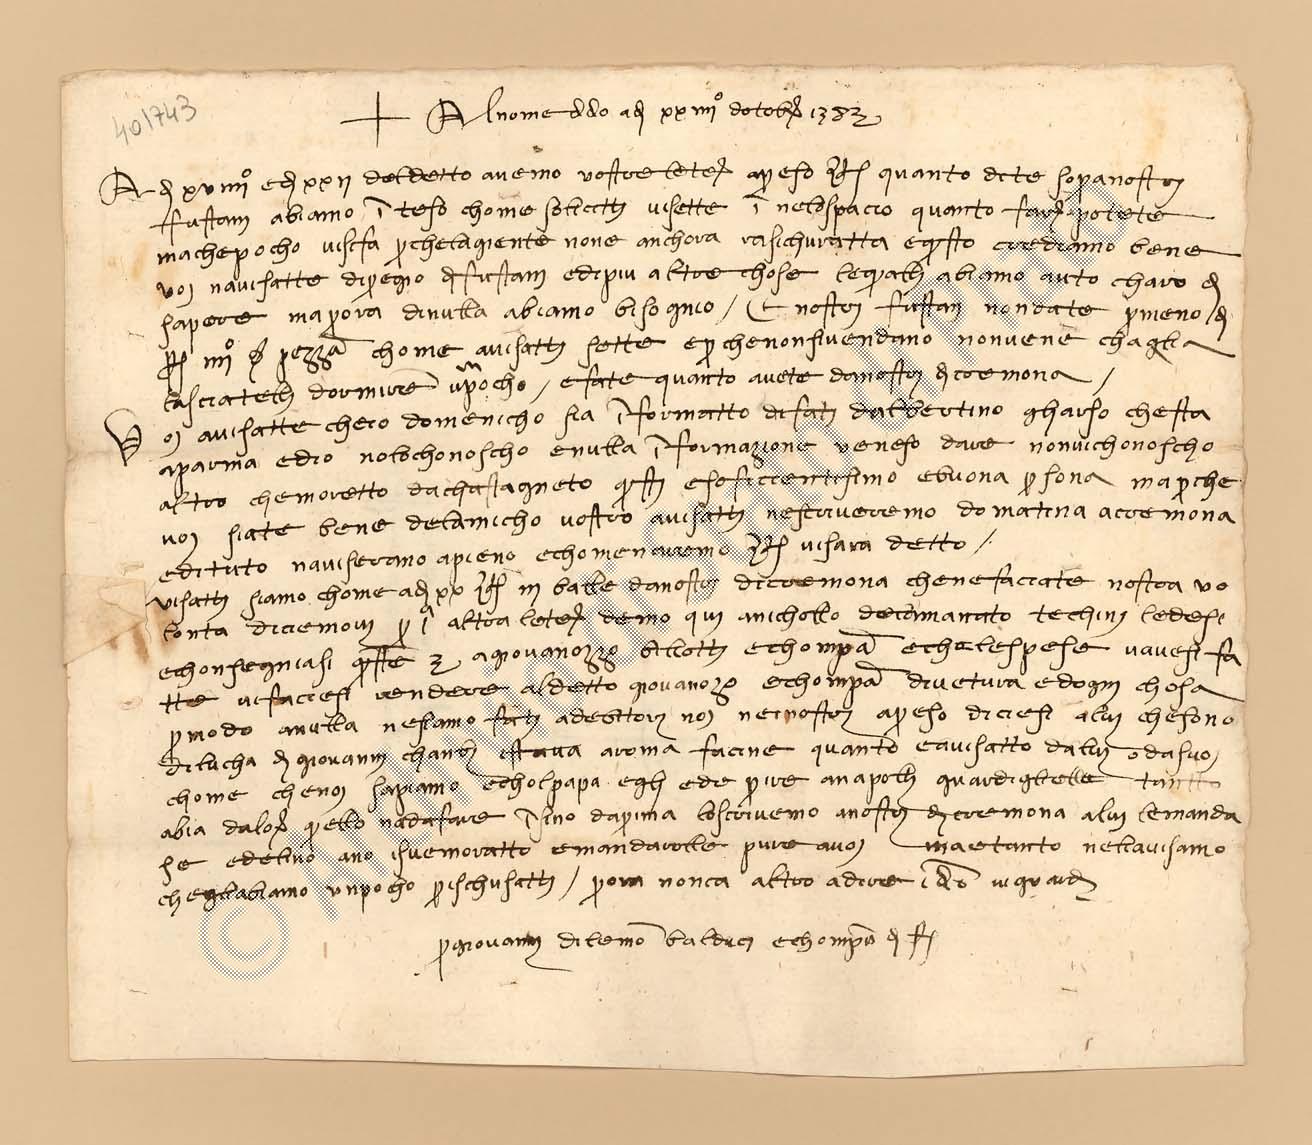 401743
Al nome di dio adi xxiiii° dotobr 1383
Adi xviiii° e di xxii del detto avemo vostre letere apreso quanto dite sopra nostri
fustani abiamo inteso chome soleciti visette in nelo spacio quanto fare potete
ma che pocho visi fa per che la giente none anchora rasichuratta e questo crediamo bene
voi navisatte di pregio di fustani e di piu altre chose le quali abiamo auto charo di
sapere ma per ora di nulla abiamo bisognio / E nostri fustani non date per meno di
iiii° per pezza chome avisati sette e per che non si vendano non vene chaglia
lasciateli dormire un pocho / e fate quanto avete da nostri di cremona /
Voi avisatte che io domenicho sia informatto di fati dalbertino gharso che sta
a parma ed io nolo chonoscho e nulla informazione veneso dare non vi chonoscho
altro che moretto da chastagneto questi e soficientisimo e buona persona ma per che
voi siate bene delamicho vostro avisati ne scriveremo domatina a cremona
e di tuto naviserano a pieno e chome navremo visara detto /
visati siamo chome adi xv in balle da nostri di cremona che ne faciate nostra vo
lonta diciemovi per i altra letera demo qui a nicholo delamanato techini le desi
e chonsegniasi a giovanozo biliotti e chompa e che le spese vavesi fa
tte vi faciesi rendere al detto giovanozo e chompa di vetura e dogni chosa
per modo a nulla ne siamo fati debitori noi ne i nostri apreso diciesi a lui che sono
di lucha di giovanni stava a roma facine quanto e avisatto da lui o da suo
chome che noi sapiamo chol papa egli ede per ire a napoli guardi gliele tanto
abia dalor quello na da fare insino da prima lo scrivemo a nostri di cremona a lui le manda
se ed elino ano isvemoratto e mandarole pure a voi ma e tanto nelavisamo
che gliabiamo un pocho per ischusati / per ora non ca altro a dire idio vi guardi
per giovanni di lemo balduci e chompa di